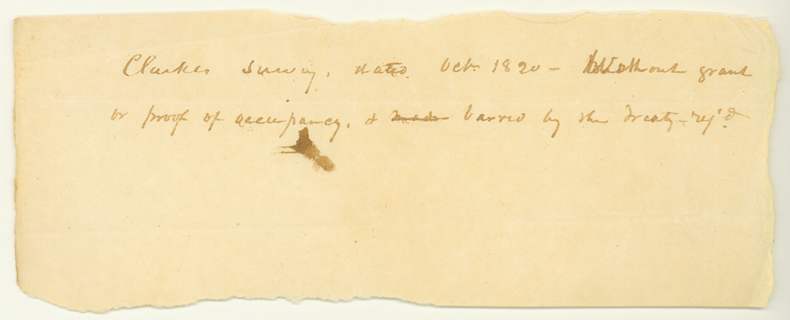 Clarkes Survey, dated Octr 1820 - Without grant
or proof of occupancy, & made barred by the Treaty - rej'd.